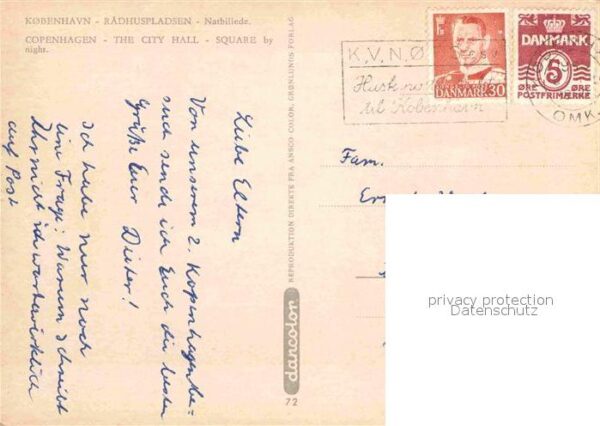 KØBENHAVN - RÅDHUSPLADSEN - Natbillede.
COPENHAGEN - THE CITY HALL - SQUARE by
night.
Liebe Eltern
Von unserem 2. Kopenhagenbe=
such sende ich Euch die besten
Grüße Euer Dieter!
Ich habe nur noch
eine Frage: Warum schreibt
Ihr nicht ich warte wirklich
auf Post
REPRODUKTION DIREKTE FRA ANSCO COLOR, GRØNLUNDS FORLAG
dancolor
72
K.V.N.Ø
Husk
til København
DANMARK 30
DANMARK
5
ØRE ØRE
POSTFRIMÆRKE
OMK
Fam.
privacy protection
Datenschutz